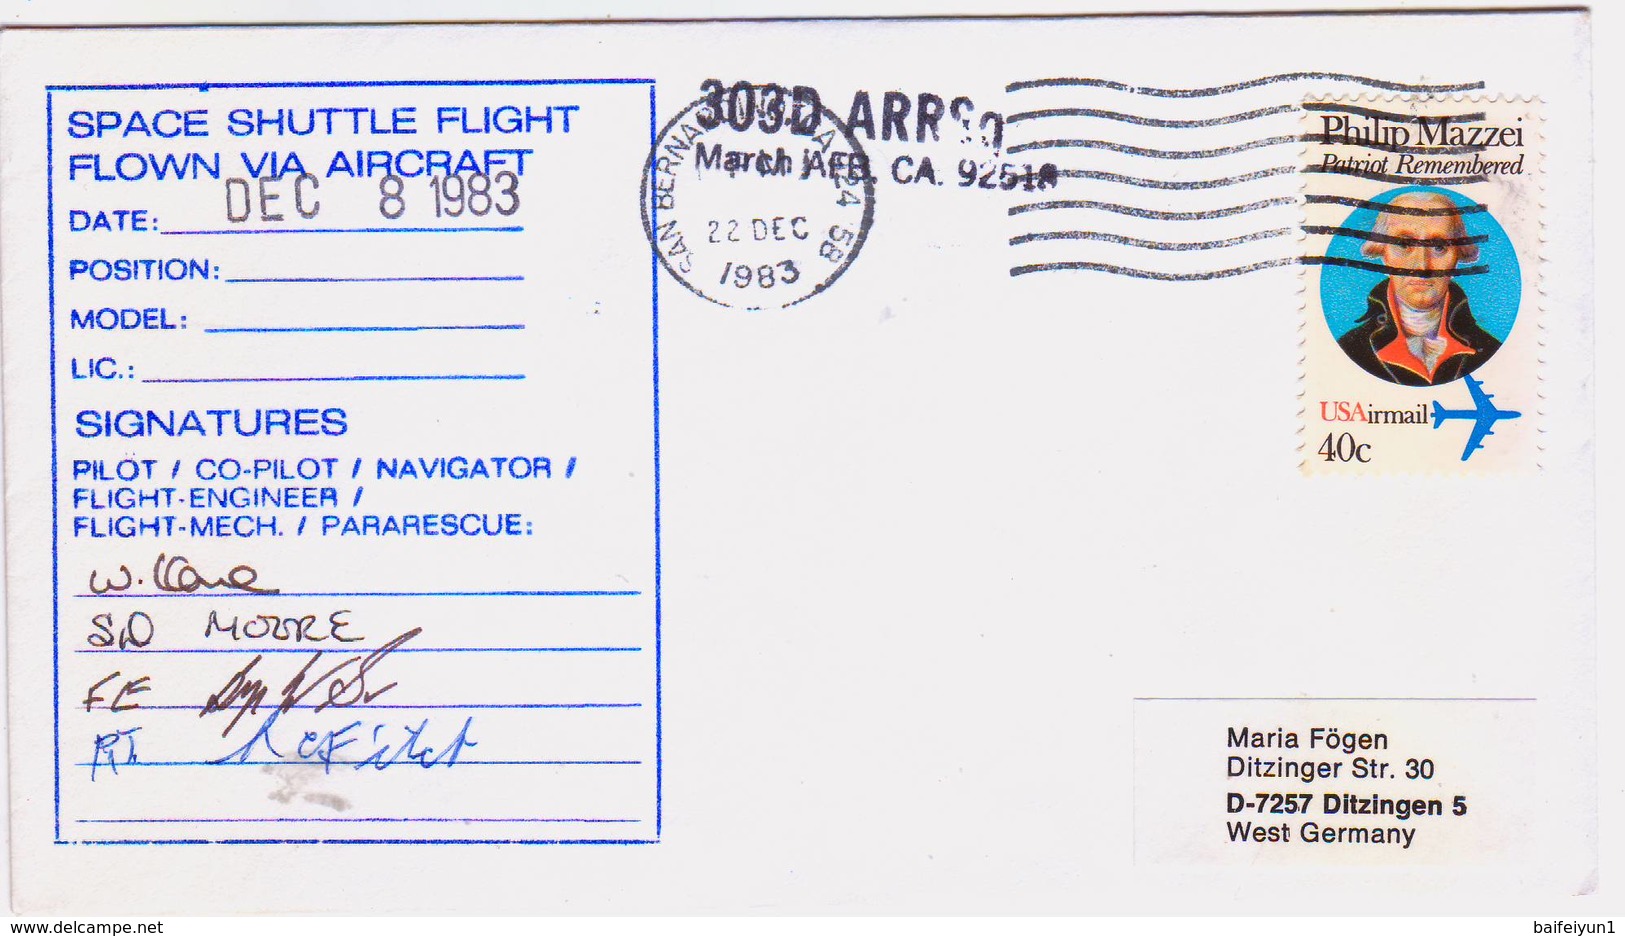 SPACE SHUTTLE FLIGHT
FLOWN VIA AIRCRAFT
DEC 8 1983
DATE:
POSITION:
MODEL:
LIC.:
SIGNATURES
PILOT / CO-PILOT / NAVIGATOR /
FLIGHT-ENGINEER /
FLIGHT-MECH. / PARARESCUE:
W.
SD MOORE
FE
303D ARRSq
March AFB, CA. 92518
SAN BERNARDINO, CA 924 58
22 DEC
1983
Philip Mazzei
Patriot Remembered
USAirmail
40c
Maria Fögen
Ditzinger Str. 30
D-7257 Ditzingen 5
West Germany
delcampe.net
baifeiyun1